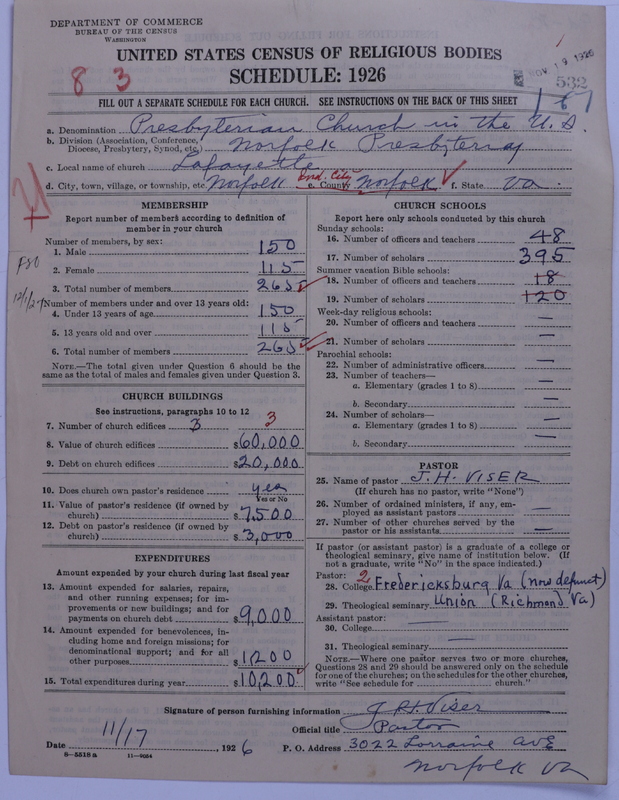 DEPARTMENT OF COMMERCE
BUREAU OF THE CENSUS
WASHINGTON
UNITED STATES CENSUS OF RELIGIOUS BODIES
SCHEDULE: 1926
8 3
NOV. 19 1926
532
FILL OUT A SEPARATE SCHEDULE FOR EACH CHURCH. SEE INSTRUCTIONS ON THE BACK OF THIS SHEET
167
a. Denomination Presbyterian Church in the U.S.
b. Division (Association, Conference, Diocese, Presbytery, Synod, etc.) Norfolk Presbytery
c. Local name of church Lafayette
Ind. City
d. City, town, village, or township, etc. Norfolk e. County Norfolk f. State Va.
MEMBERSHIP
Report number of members according to definition of
member in your church
Number of members, by sex:
1. Male 150
2. Female 115
3. Total number of members 265
Number of members under and over 13 years old:
4. Under 13 years of age 150
5. 13 years old and over 115
6. Total number of members 265
NOTE.—The total given under Question 6 should be
same as the total of males and females given under Question 3.
CHURCH BUILDINGS
See instructions, paragraphs 10 to 12
7. Number of church edifices 3 3
8. Value of church edifices $60,000
9. Debt on church edifices $20,000
10. Does church own pastor's residence yes
Yes or No
11. Value of pastor's residence (if owned by
church) $7,500
12. Debt on pastor's residence (if owned by
church) $3,000
EXPENDITURES
Amount expended by your church during last fiscal year
13. Amount expended for salaries, repairs,
and other running expenses; for im-
provements or new buildings; and for
payments on church debt $9,000
14. Amount expended for benevolences, in-
cluding home and foreign missions; for
denominational support; and for all
other purposes $1,200
15. Total expenditures during year $10,200
CHURCH SCHOOLS
Report here only schools conducted by this church
Sunday schools:
16. Number of officers and teachers 48
17. Number of scholars 395
Summer vacation Bible schools:
18. Number of officers and teachers 18
19. Number of scholars 120
Week-day religious schools:
20. Number of officers and teachers —
21. Number of scholars —
Parochial schools:
22. Number of administrative officers —
23. Number of teachers—
a. Elementary (grades 1 to 8) —
b. Secondary —
24. Number of scholars—
a. Elementary (grades 1 to 8) —
b. Secondary —
PASTOR
25. Name of pastor J. H. VISER
(If church has no pastor, write "None")
26. Number of ordained ministers, if any, em-
ployed as assistant pastors —
27. Number of other churches served by the
pastor or his assistants —
If pastor (or assistant pastor) is a graduate of a college or
theological seminary, give name of institution below. (If
not a graduate, write "No" in the space indicated.)
Pastor: 2
28. College Fredericksburg Va (now defunct)
29. Theological seminary Union (Richmond Va)
Assistant pastor:
30. College —
31. Theological seminary —
NOTE.—Where one pastor serves two or more churches,
Questions 28 and 29 should be answered only on the schedule
for one of the churches; on the schedules for the other churches,
write "See schedule for ........ church."
Signature of person furnishing information J. H. Viser
Official title Pastor
Date 11/17 1926 P. O. Address 3022 Lorraine ave
Norfolk Va
8—5518 a 11—9054